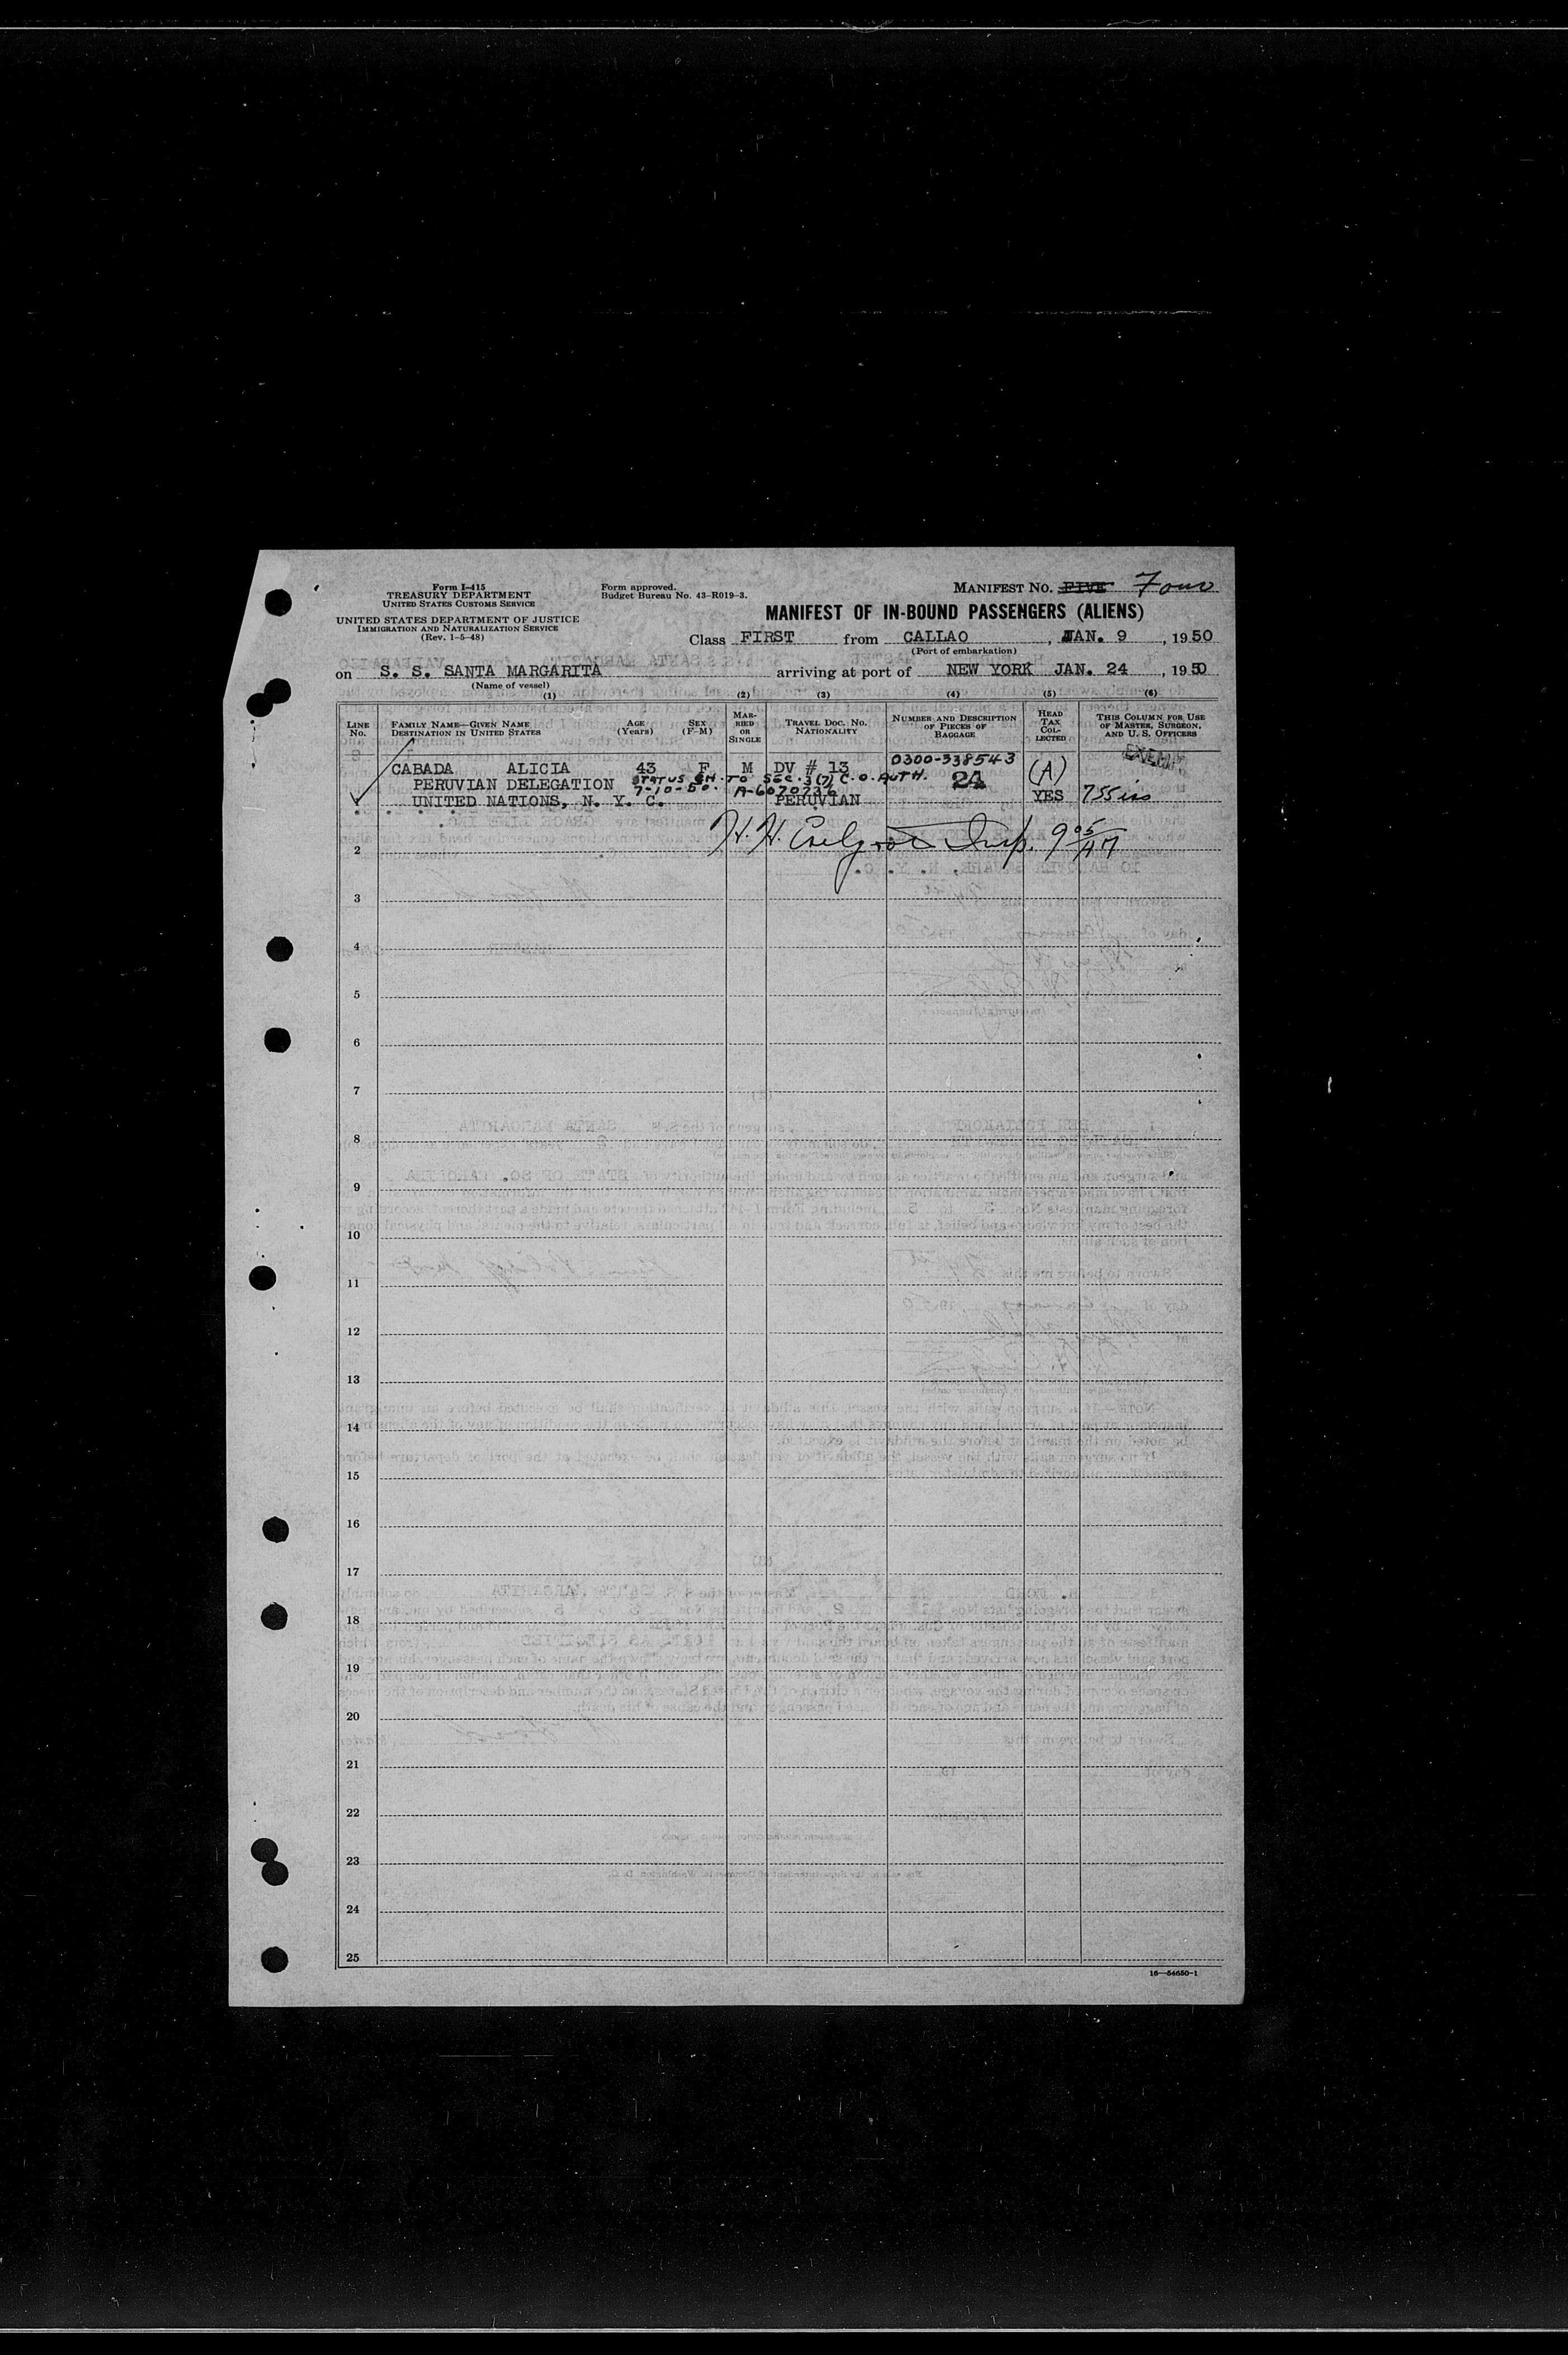 Form I-415
TREASURY DEPARTMENT
UNITED STATES CUSTOMS SERVICE
UNITED STATES DEPARTMENT OF JUSTICE
IMMIGRATION AND NATURALIZATION SERVICE
(Rev. 1-5-48)
Form approved.
Budget Bureau No. 43-R019-3.
MANIFEST NO. FIVE Four
MANIFEST OF IN-BOUND PASSENGERS (ALIENS)
Class FIRST from CALLAO, JAN. 9, 1950
(Port of embarkation)
on S. S. SANTA MARGARITA arriving at port of NEW YORK JAN. 24, 1950
(Name of vessel)
(1) (2) (3) (4) (5) (6)
LINE NO. FAMILY NAME—GIVEN NAME DESTINATION IN UNITED STATES AGE (Years) SEX (F-M) MARRIED OR SINGLE TRAVEL DOC. NO. NATIONALITY NUMBER AND DESCRIPTION OF PIECES OF BAGGAGE HEAD TAX COLLECTED THIS COLUMN FOR USE OF MASTER, SURGEON, AND U. S. OFFICERS
0300-338543 EXEMPT
CABADA ALICIA 43 F M DV # 13 (A)
PERUVIAN DELEGATION STATUS CH. TO SEC. 3(7) C.O. AUTH. 24
7-10-50. A-6070736
UNITED NATIONS, N. Y. C. PERUVIAN YES
H. H. Insp.
2
3
4
5
6
7
8
9
10
11
12
13
14
15
16
17
18
19
20
21
22
23
24
25
16—54650-1